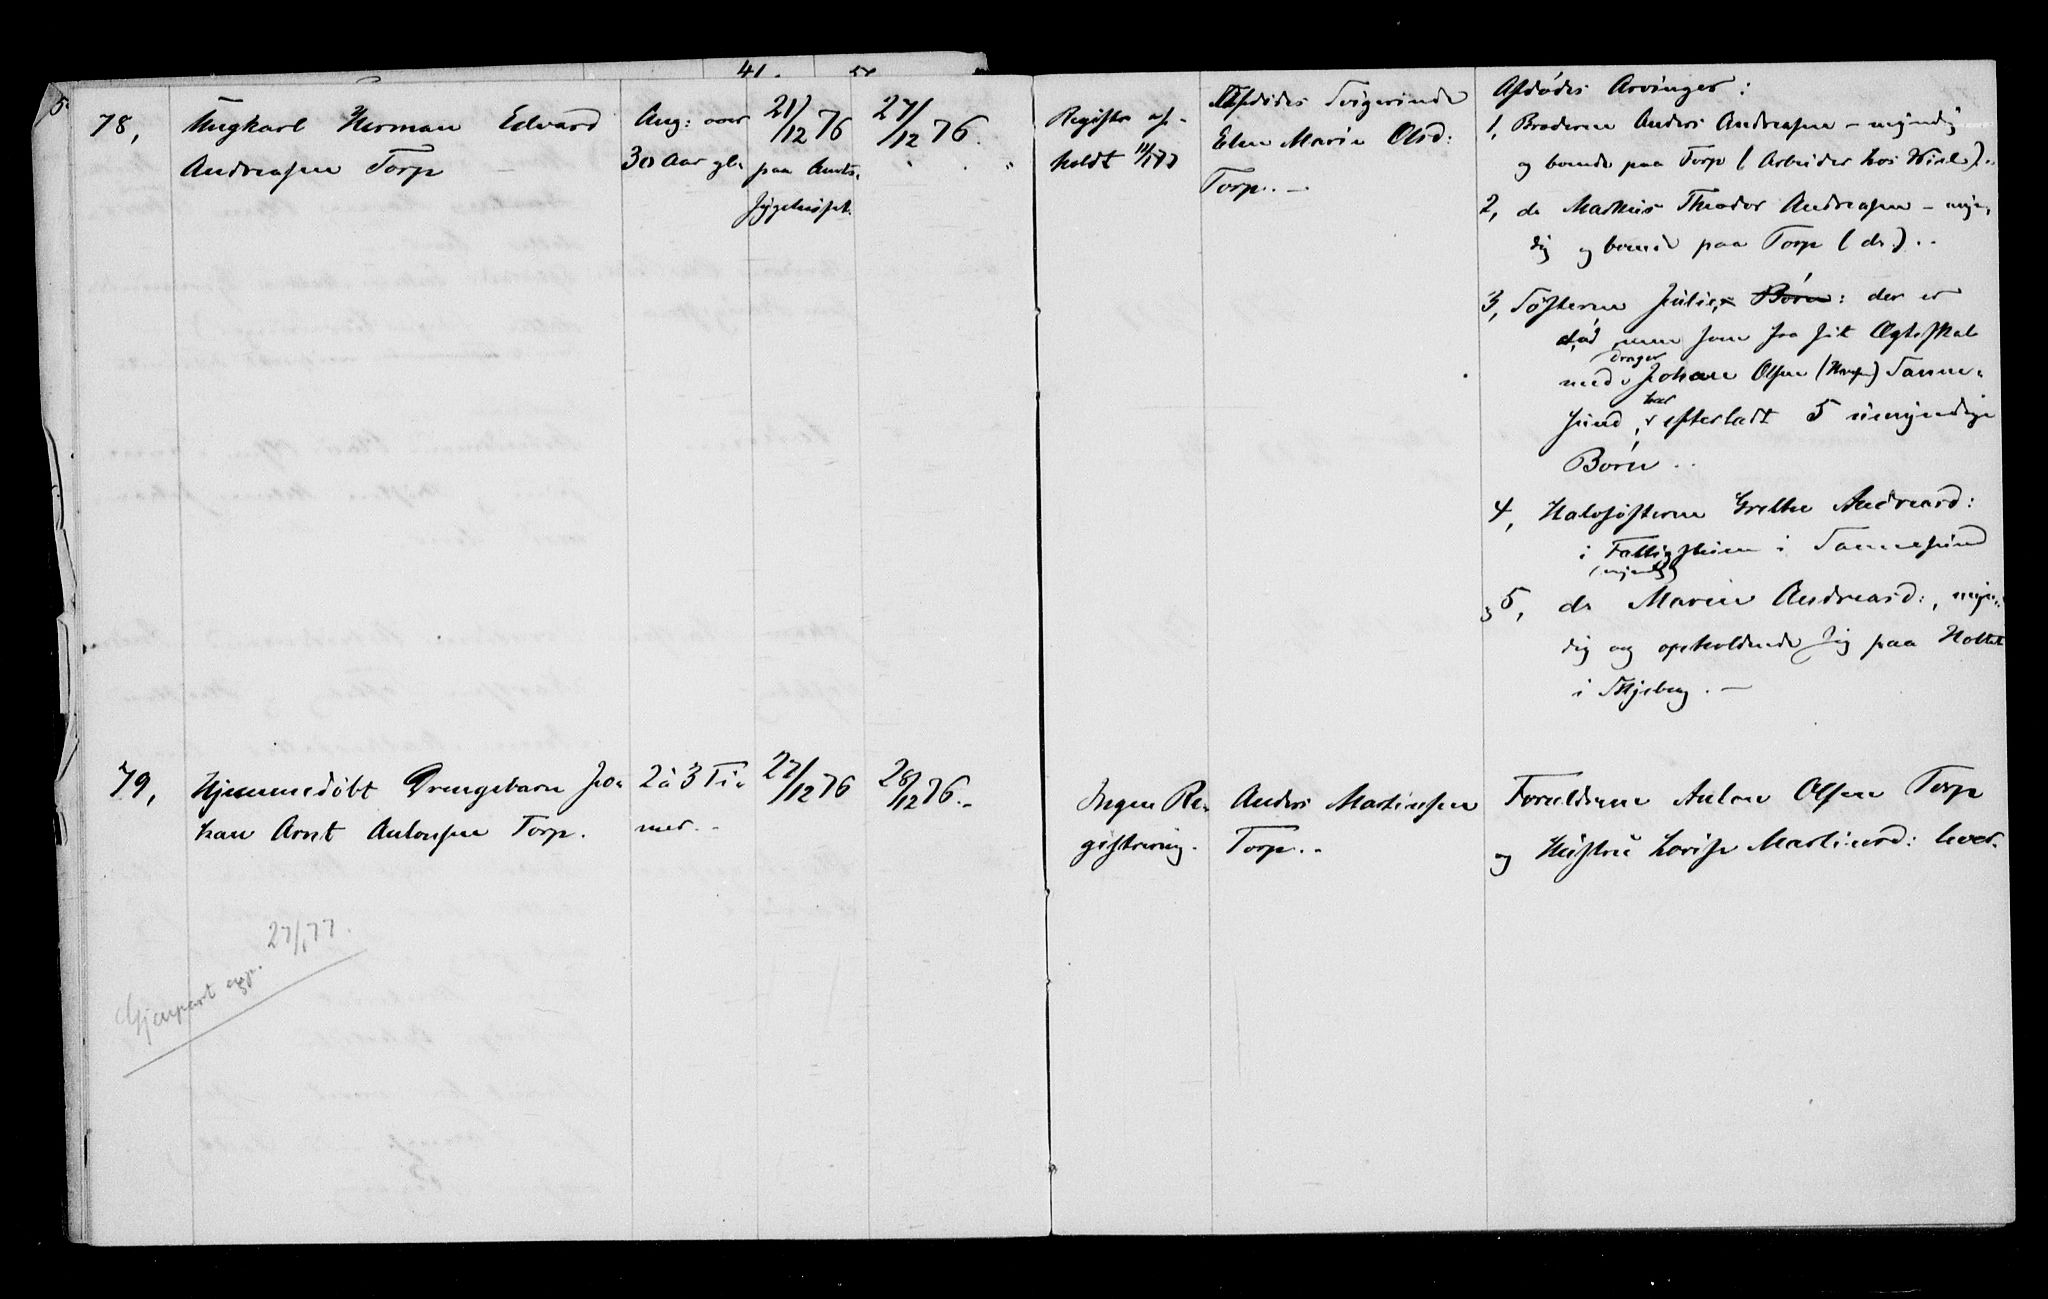 41.
78, Ungkarl Herman Edvard
Andreasen Torp
Ang: over
30 Aar gl:
21/12 76
paa Amts-
sygehuset.
27/12 76.
Registr. af-
holdt 11/1 77
Afdødes Svigerinde
Elen Marie Olsd:
Torp. -
Afdødes Arvinger:
1, Broderen Anders Andreasen - myndig
og boende paa Torp (Arbeider hos Wiel)..
2, do Markus Theodor Andreasen - myn-
dig og boende paa Torp (do.)..
3, Søsteren Julie, Børn: der er
død, men som fra sit Ægteskab
med Johan Olsen Dreyer Sanne-
sund, har efterladt 5 umyndige
Børn..
4, Halvsøsteren Grethe Andreasd:
i Fattigpleien i Sannesund
(myndig)
5, do Maren Andreasd:, myn-
dig og opholdende sig paa Holtet
i Skjeberg. -
79, Hjemmedøbt Drengebarn Jo-
han Arnt Antonsen Torp.
2 à 3 Ti-
mer. -
27/12 76
28/12 76. -
Ingen Re-
gistrering.
Anders Martinsen
Torp..
Forældrene Anton Olsen Torp
og Hustru Lovise Martinsd: lever.
Gjenpart exp. 27/1 77.